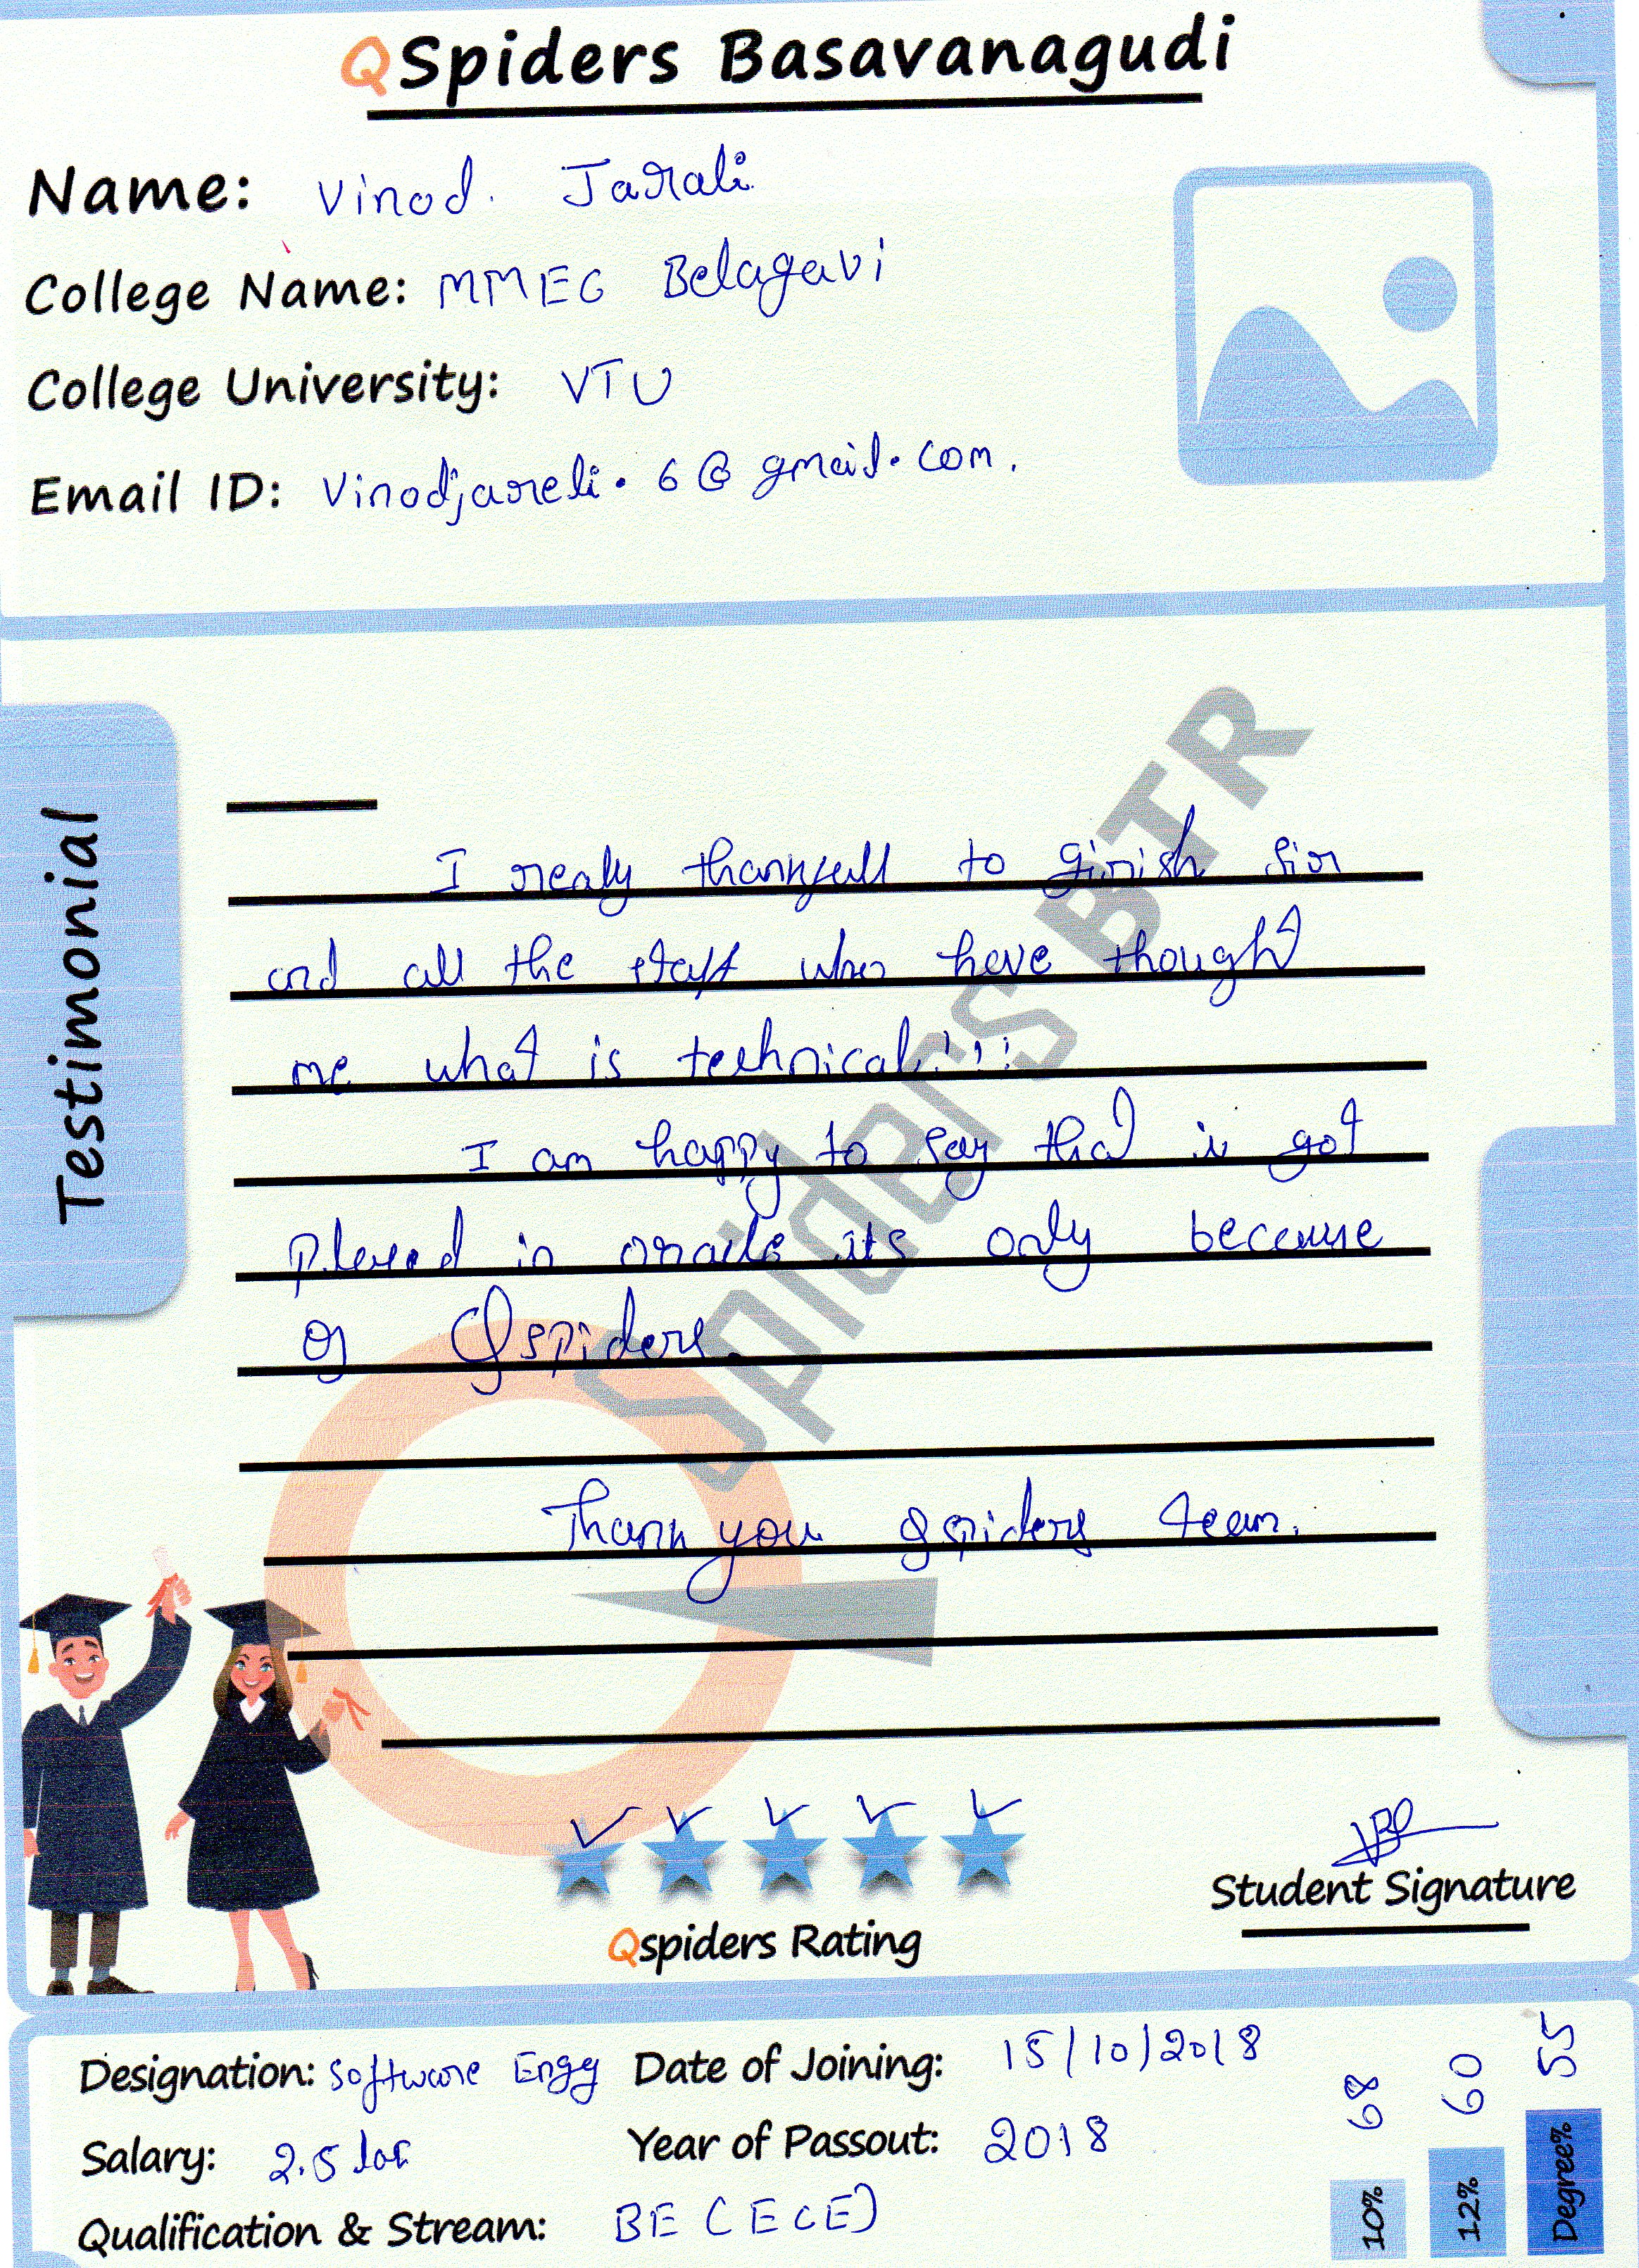 QSpiders Basavanagudi
Name: Vinod. Jarali
College Name: MMEC Belagavi
College University: VTU
Email ID: Vinodjareli.6@gmail.com.
Testimonial
I realy thankfull to girish sir
and all the staff who have thought
me what is technical!!!
I am happy to say that is got
placed in oracle its only because
of Qspiders.
Thank you qspiders team.
Spiders BTR
Qspiders Rating
Student Signature
Designation: Software Engg
Date of Joining: 15/10/2018
Salary: 2.5 lak
Year of Passout: 2018
Qualification & Stream: BE (ECE)
10% 68
12% 60
Degree% 55